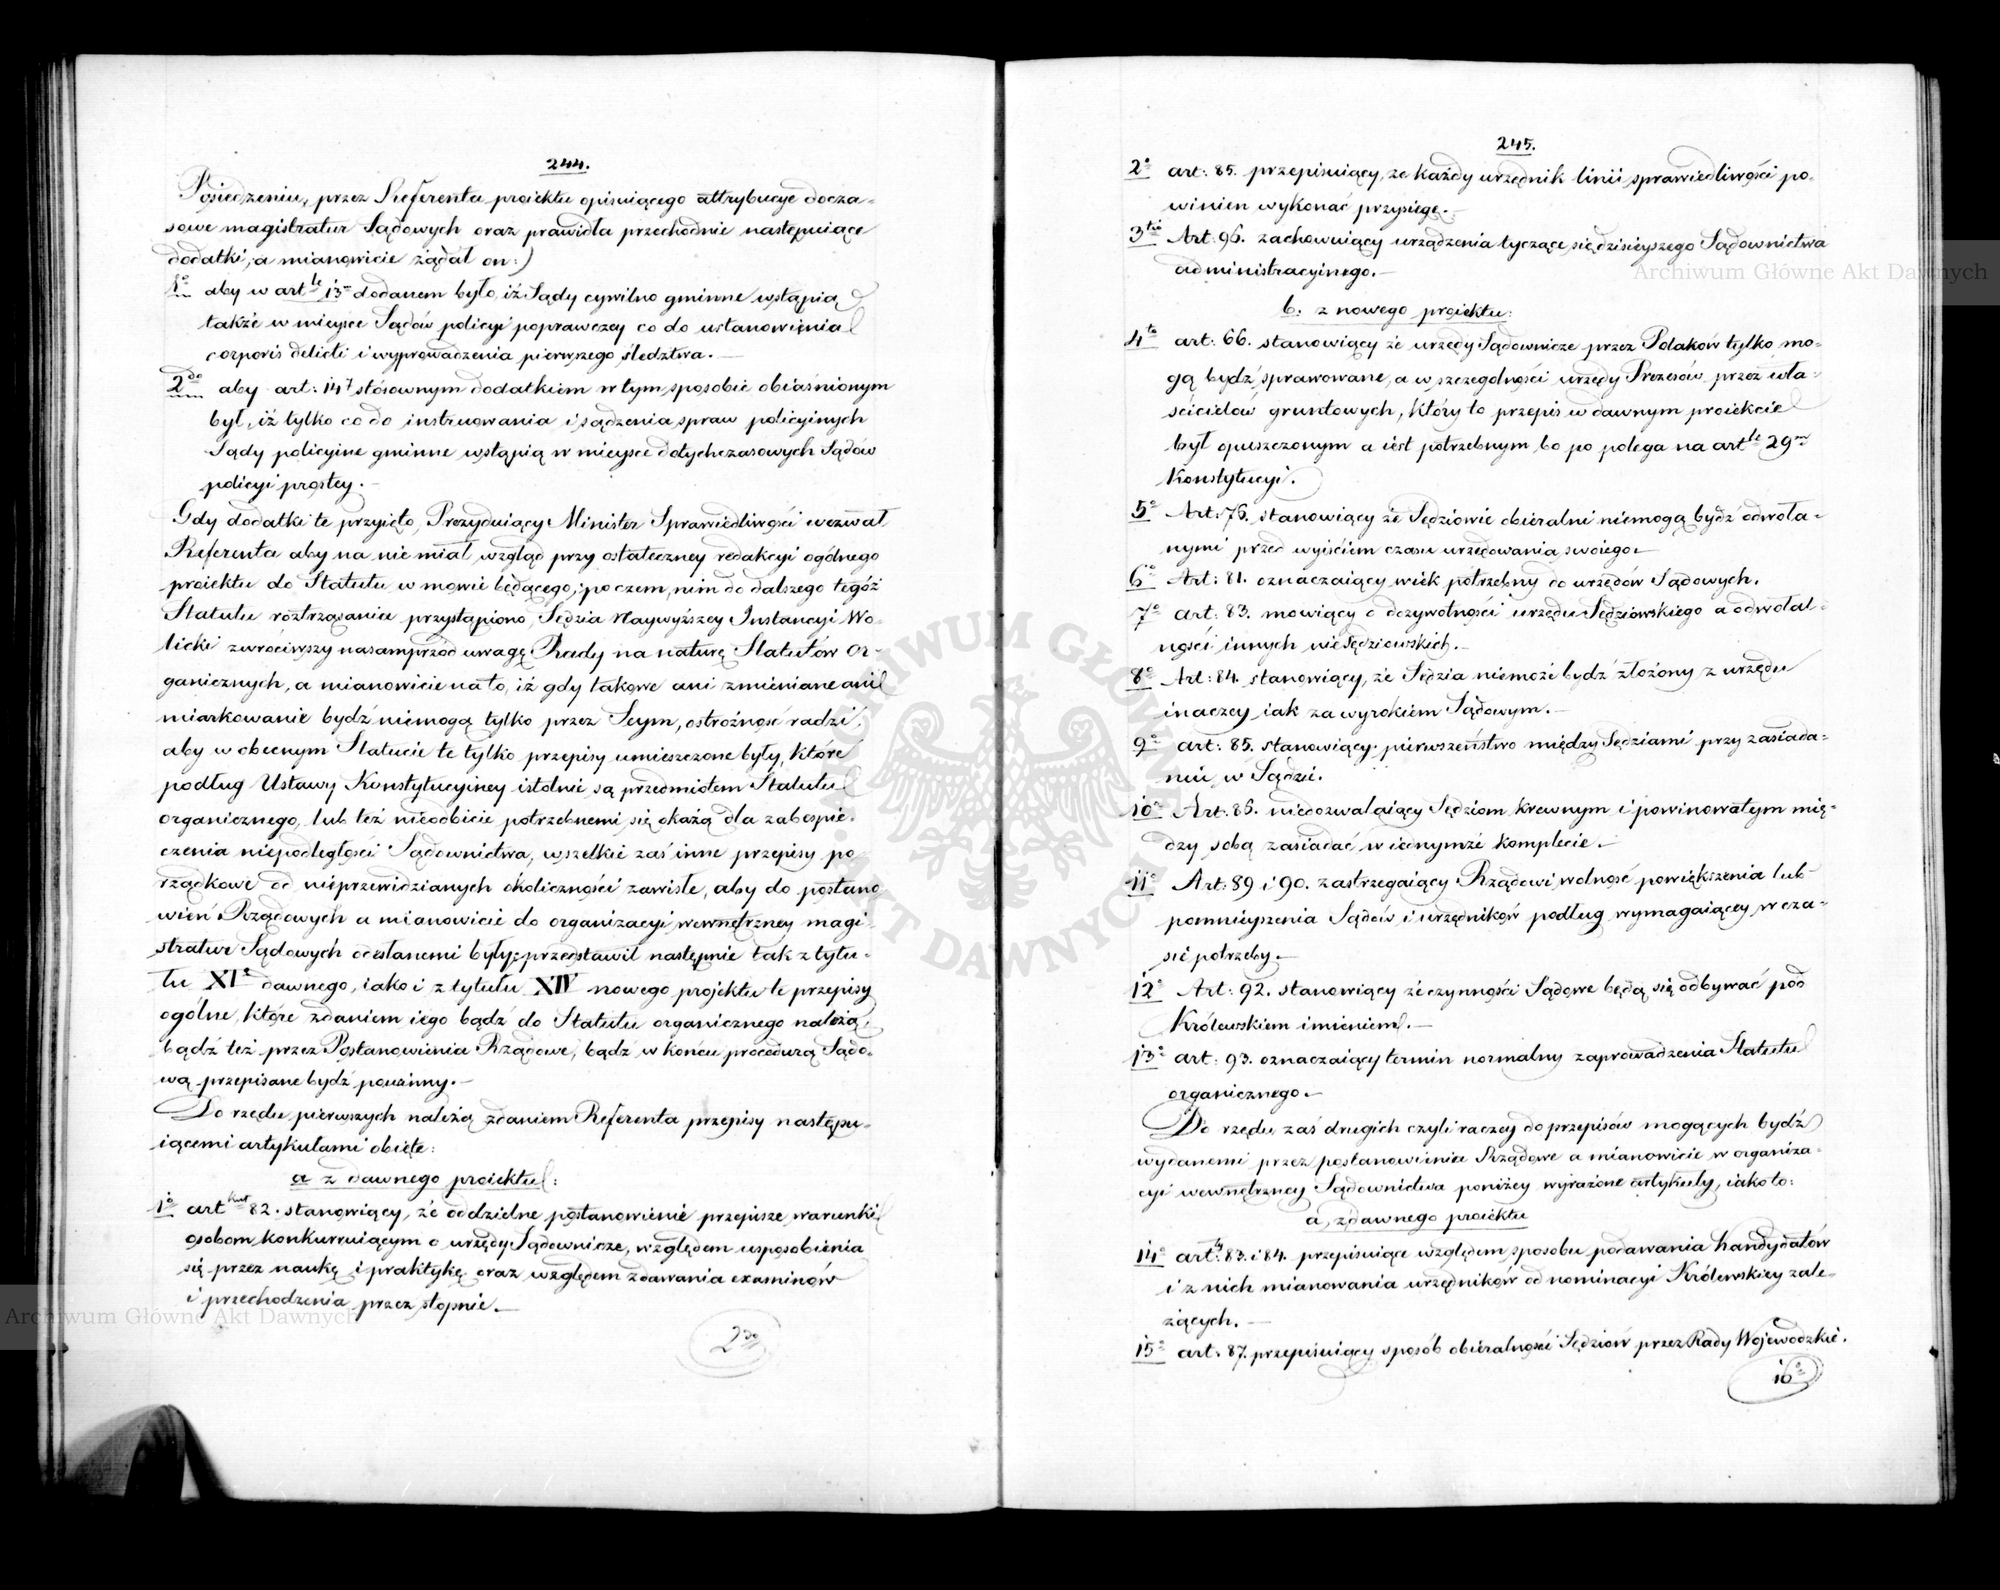 244.
Posiedzeniu, przez Referenta proiektu opisuiącego attrybucye docza-
sowe magistratur Sądowych oraz prawidła przechodnie następuiące
dodatki, a mianowicie żądał on:)
1o aby w artle 13m dodanem było, iż Sądy cywilno gminne wstąpią
także w mieysce Sądów policyi poprawczey co do ustanowienia
corporis delicti i wyprowadzenia pierwszego śledztwa. —
2do aby art: 147 stósownym dodatkiem w tym sposobie obiaśnionym
był, iż tylko co do instruowania i sądzenia spraw policyinych
Sądy policyine gminne wstąpią w mieysce dotychczasowych Sądów
policyi prostey. —
Gdy dodatki te przyięto, Prezyduiący Minister Sprawiedliwości wezwał
Referenta aby na nie miał wzgląd przy ostateczney redakcyi ogólnego
proiektu do Statutu w mowie będącego; poczem, nim do dalszego tegóż
Statutu roztrząsania przystąpiono, Sędzia Naywyższey Instancyi Wo-
licki zwróciwszy nasamprzód uwagę Rady na naturę Statutów or-
ganicznych, a mianowicie na to, iż gdy takowe ani zmieniane ani
miarkowanie bydź niemogą tylko przez Seym, ostrożność radzi,
aby w obecnym Statucie te tylko przepisy umieszczone były, które
podług Ustawy Konstytucyiney istotnie są przedmiotem Statutu
organicznego, lub też nieodbicie potrzebnemi się okażą dla zabespie-
czenia niepodległości Sądownictwa, wszelkie zaś inne przepisy po
rządkowe od nieprzewidzianych okoliczności zawisłe, aby do postano
wień Rządowych a mianowicie do organizacyi wewnętrzney magi-
stratur Sądowych odesłanemi były; przedstawił następnie tak z tytu-
łu XIo dawnego, iako i z tytułu XIV nowego projektu te przepisy
ogólne, które zdaniem iego bądź do Statutu organicznego należą,
bądź też przez Postanowienia Rządowe, bądź w końcu procedurą Sądo-
wą przepisane bydź powinny. —
Do rzędu pierwszych należą zdaniem Referenta przepisy następu-
iącemi artykułami obięte:
a z dawnego proiektu:
1o art kuł 82. stanowiący, że oddzielne postanowienie przepisze warunki
osobom konkurruiącym o urzędy Sądownicze, względem usposobienia
się przez naukę i praktykę oraz względem zdawania examinów
i przechodzenia przez stopnie. —
2do
245.
2o art: 85. przepisuiący, że każdy urzędnik linii sprawiedliwości po-
winien wykonać przysięgę. —
3tio Art: 96. zachowuiący urządzenia tyczące się dzisieyszego Sądownictwa
administracyinego. —
b. z nowego proiektu:
4to art: 66. stanowiący że urzędy Sądownicze przez Polaków tylko mo-
gą bydź sprawowane, a w szczególności urzędy Prezesów przez wła-
ścicielów gruntowych, który to przepis w dawnym proiekcie
był opuszczonym a iest potrzebnym bo po polega na artle 29m
Konstytucyi.
5o Art: 76. stanowiący że Sędziowie obieralni niemogą bydź odwoła-
nymi przed wyiściem czasu urzędowania swoiego. —
6o Art: 81. oznaczaiący wiek potrzebny do urzędów Sądowych.
7o art: 83. mowiący o dożywotności urzędu Sędziowskiego a odwołal-
ności innych nie Sędziowskich. —
8o Art: 84. stanowiący, że Sędzia niemoże bydź złożony z urzędu
inaczey iak za wyrokiem Sądowym. —
9o art: 85. stanowiący pierwszeństwo między Sędziami przy zasiada-
niu w Sądzie.
10o Art: 86. niedozwalaiący Sędziom krewnym i powinowatym mię-
dzy sobą zasiadać w iednymże komplecie. —
11o Art: 89 i 90. zastrzegaiący Rządowi wolność powiększenia lub
pomnieyszenia Sądów i urzędników podług wymagaiącey w cza-
sie potrzeby. —
12o Art: 92. stanowiący że czynności Sądowe będą się odbywać pod
Królewskiem imieniem. —
13o art: 93. oznaczaiący termin normalny zaprowadzenia Statutu
organicznego. —
Do rzędu zaś drugich czyli raczey do przepisów mogących bydź
wydanemi przez postanowienia Rządowe a mianowicie w organiza-
cyi wewnętrzney Sądownictwa poniżey wyrażone artykuły, iako to:
a, z dawnego proiektu
14o artły 83. i 84. przepisuiące względem sposobu podawania kandydatów
i z nich mianowania urzędników od nominacyi Królewskiey zale-
żących. —
15o art: 87. przepisuiący sposób obieralności Sędziów przez Rady Wojewodzkie.
16o
Archiwum Główne Akt Dawnych
Archiwum Główne Akt Dawnych
ARCHIWUM GŁÓWNE AKT DAWNYCH